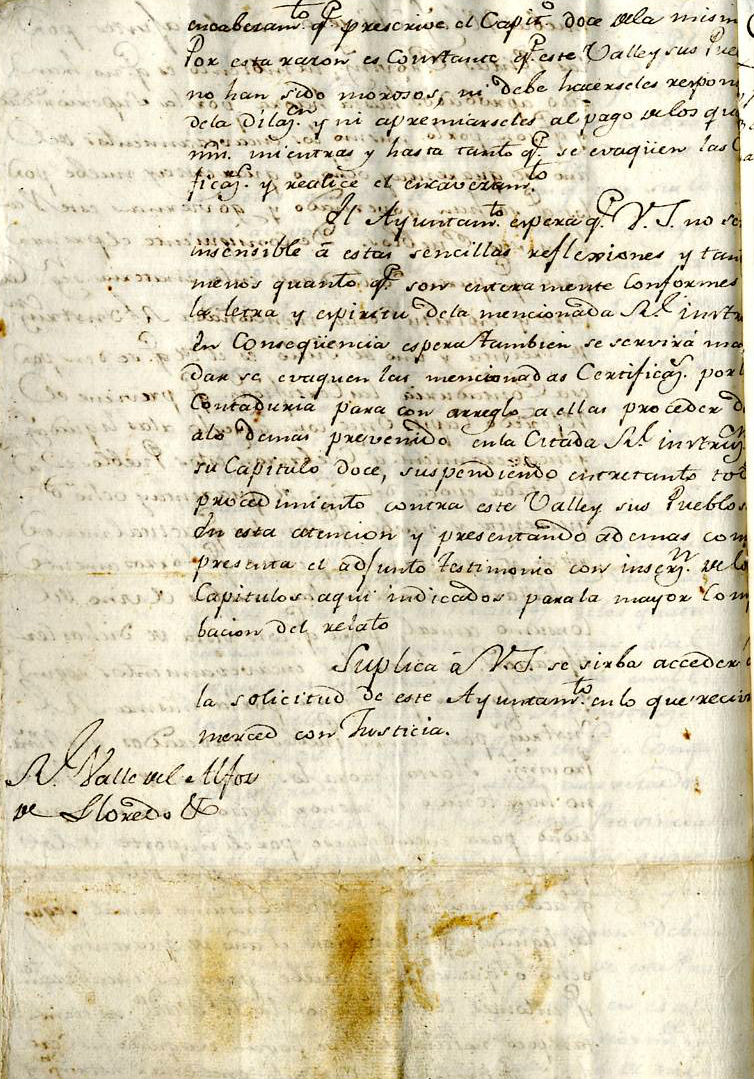 encabezam.to q.e prescrive el Capit.o doce dela mism
Por esta razon es Constante q.e este Valle y sus Pue
no han sido morosos, ni debe haverseles respon
dela dilaz.on y ni apremiarseles al pago de los que
mientras y hasta tanto q.e se evaqüen las C
ficaz.s y realice el encavezam.to
El Ayuntam.to espera q.e V.S. no se
insensible á estas sencillas reflexiones y tan
menos quanto q.e son enteramente conformes
la letra y espiritu dela mencionada R.l instr
En Conseqüencia espera tambien se servirá ma
dar se evaquen las mencionadas Certificaz.s por l
Contaduria para con arreglo a ellas proceder d
alo demas prevenido en la Citada R.l instruz.n
su Capitulo doce, suspendiendo entretanto tod
procedimiento contra este Valle y sus Pueblos
En esta atencion y presentando ademas com
presenta el adjunto testimonio con inserz.n de lo
Capitulos aqui indicados para la mayor Com
bacion del relato
Suplica á V.S. se sirba acceder á
la solicitud de este Ayuntam.to en lo que recivi
merced con Justicia.
R.l Valle del Alfoz
de Lloredo &